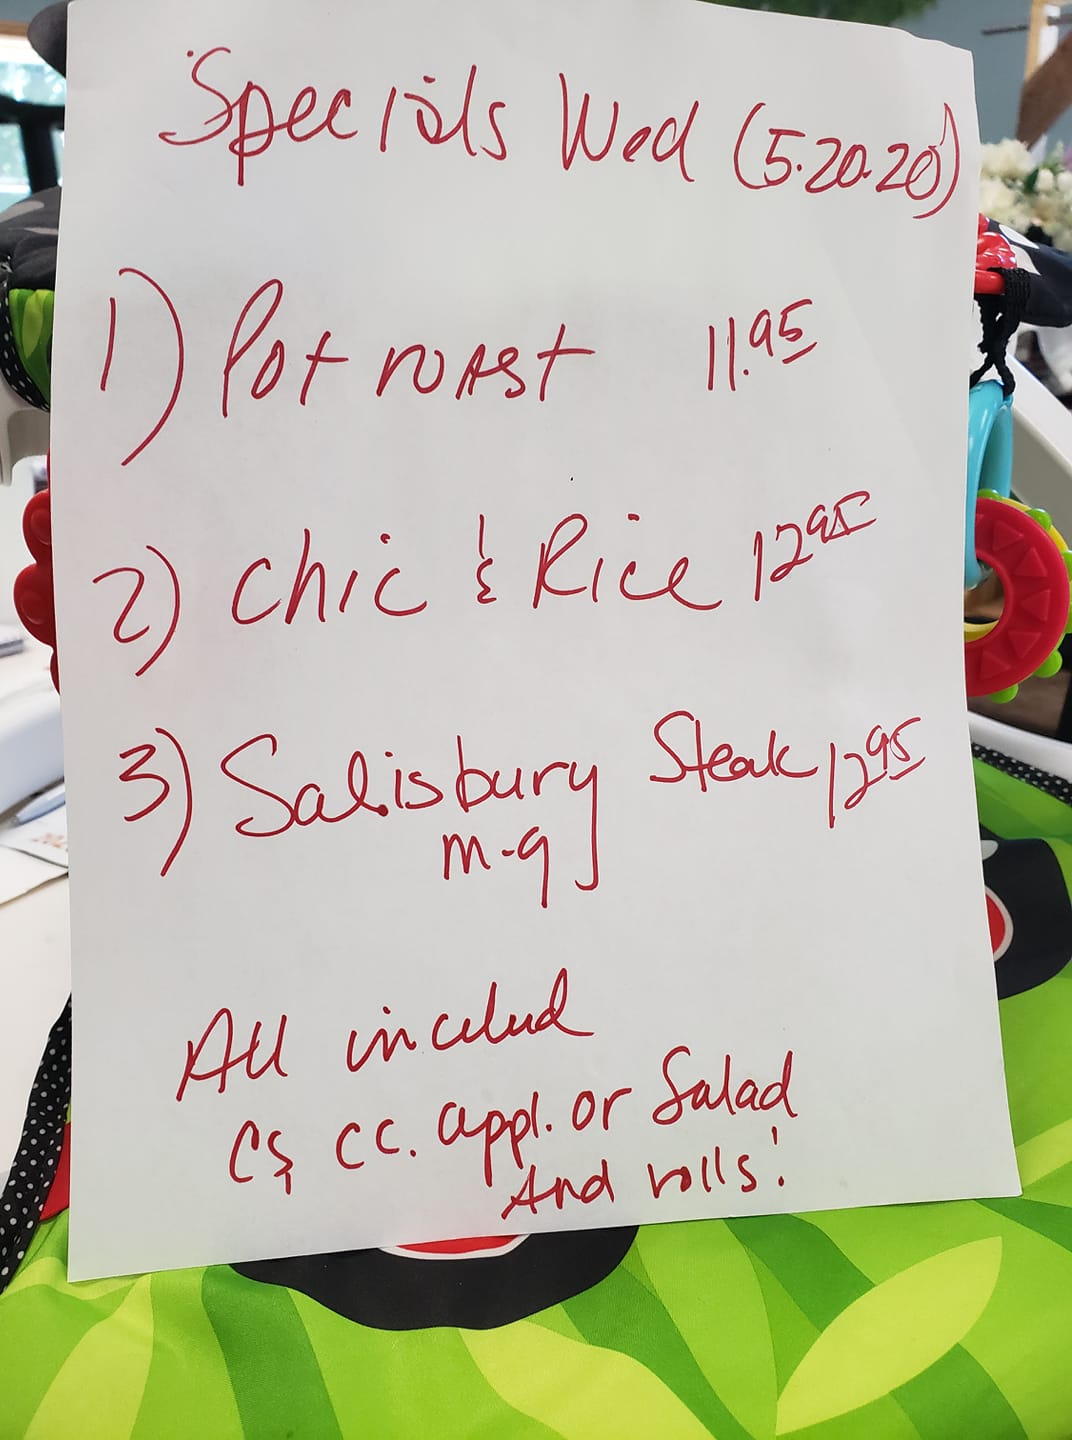 Specials Wed (5.20.20)
1) Pot roast 11.95
2) Chic & Rice 12 95
3) Salisbury Steak 12 95
m-g
All includ
CS, CC. appl. or Salad
And rolls!